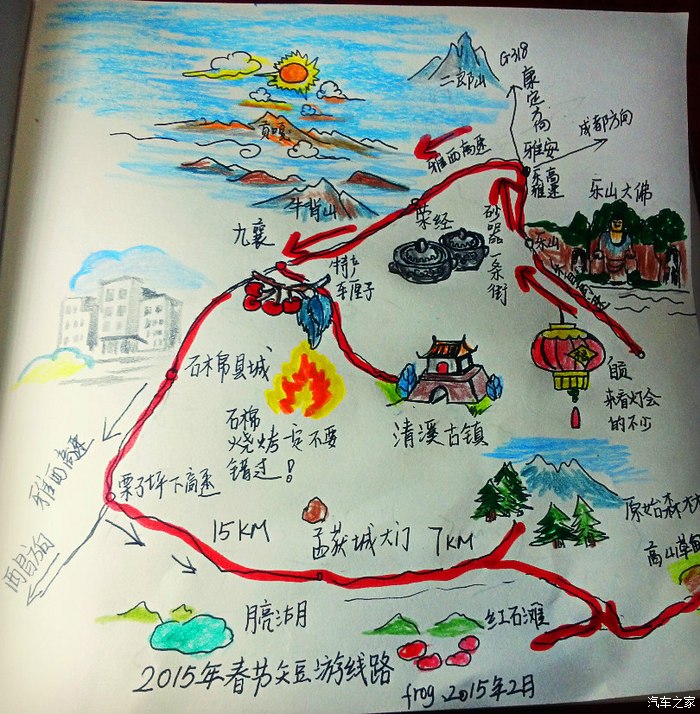 G318
二郎山
康定方向
成都方向
雅西高速
雅安
乐雅高速
乐山大佛
贡嘎
牛背山
荥经
砂器一条街
乐山
九襄
特产
车厘子
石棉县城
石棉
烧烤一定不要
错过!
清溪古镇
来看灯会
的不少
雅西高速
栗子坪下高速
西昌方向
15KM
孟获城大门
7KM
原始森林
高山草甸
月亮湖
红石滩
2015年春节短游线路
frog.2015年2月
汽车之家